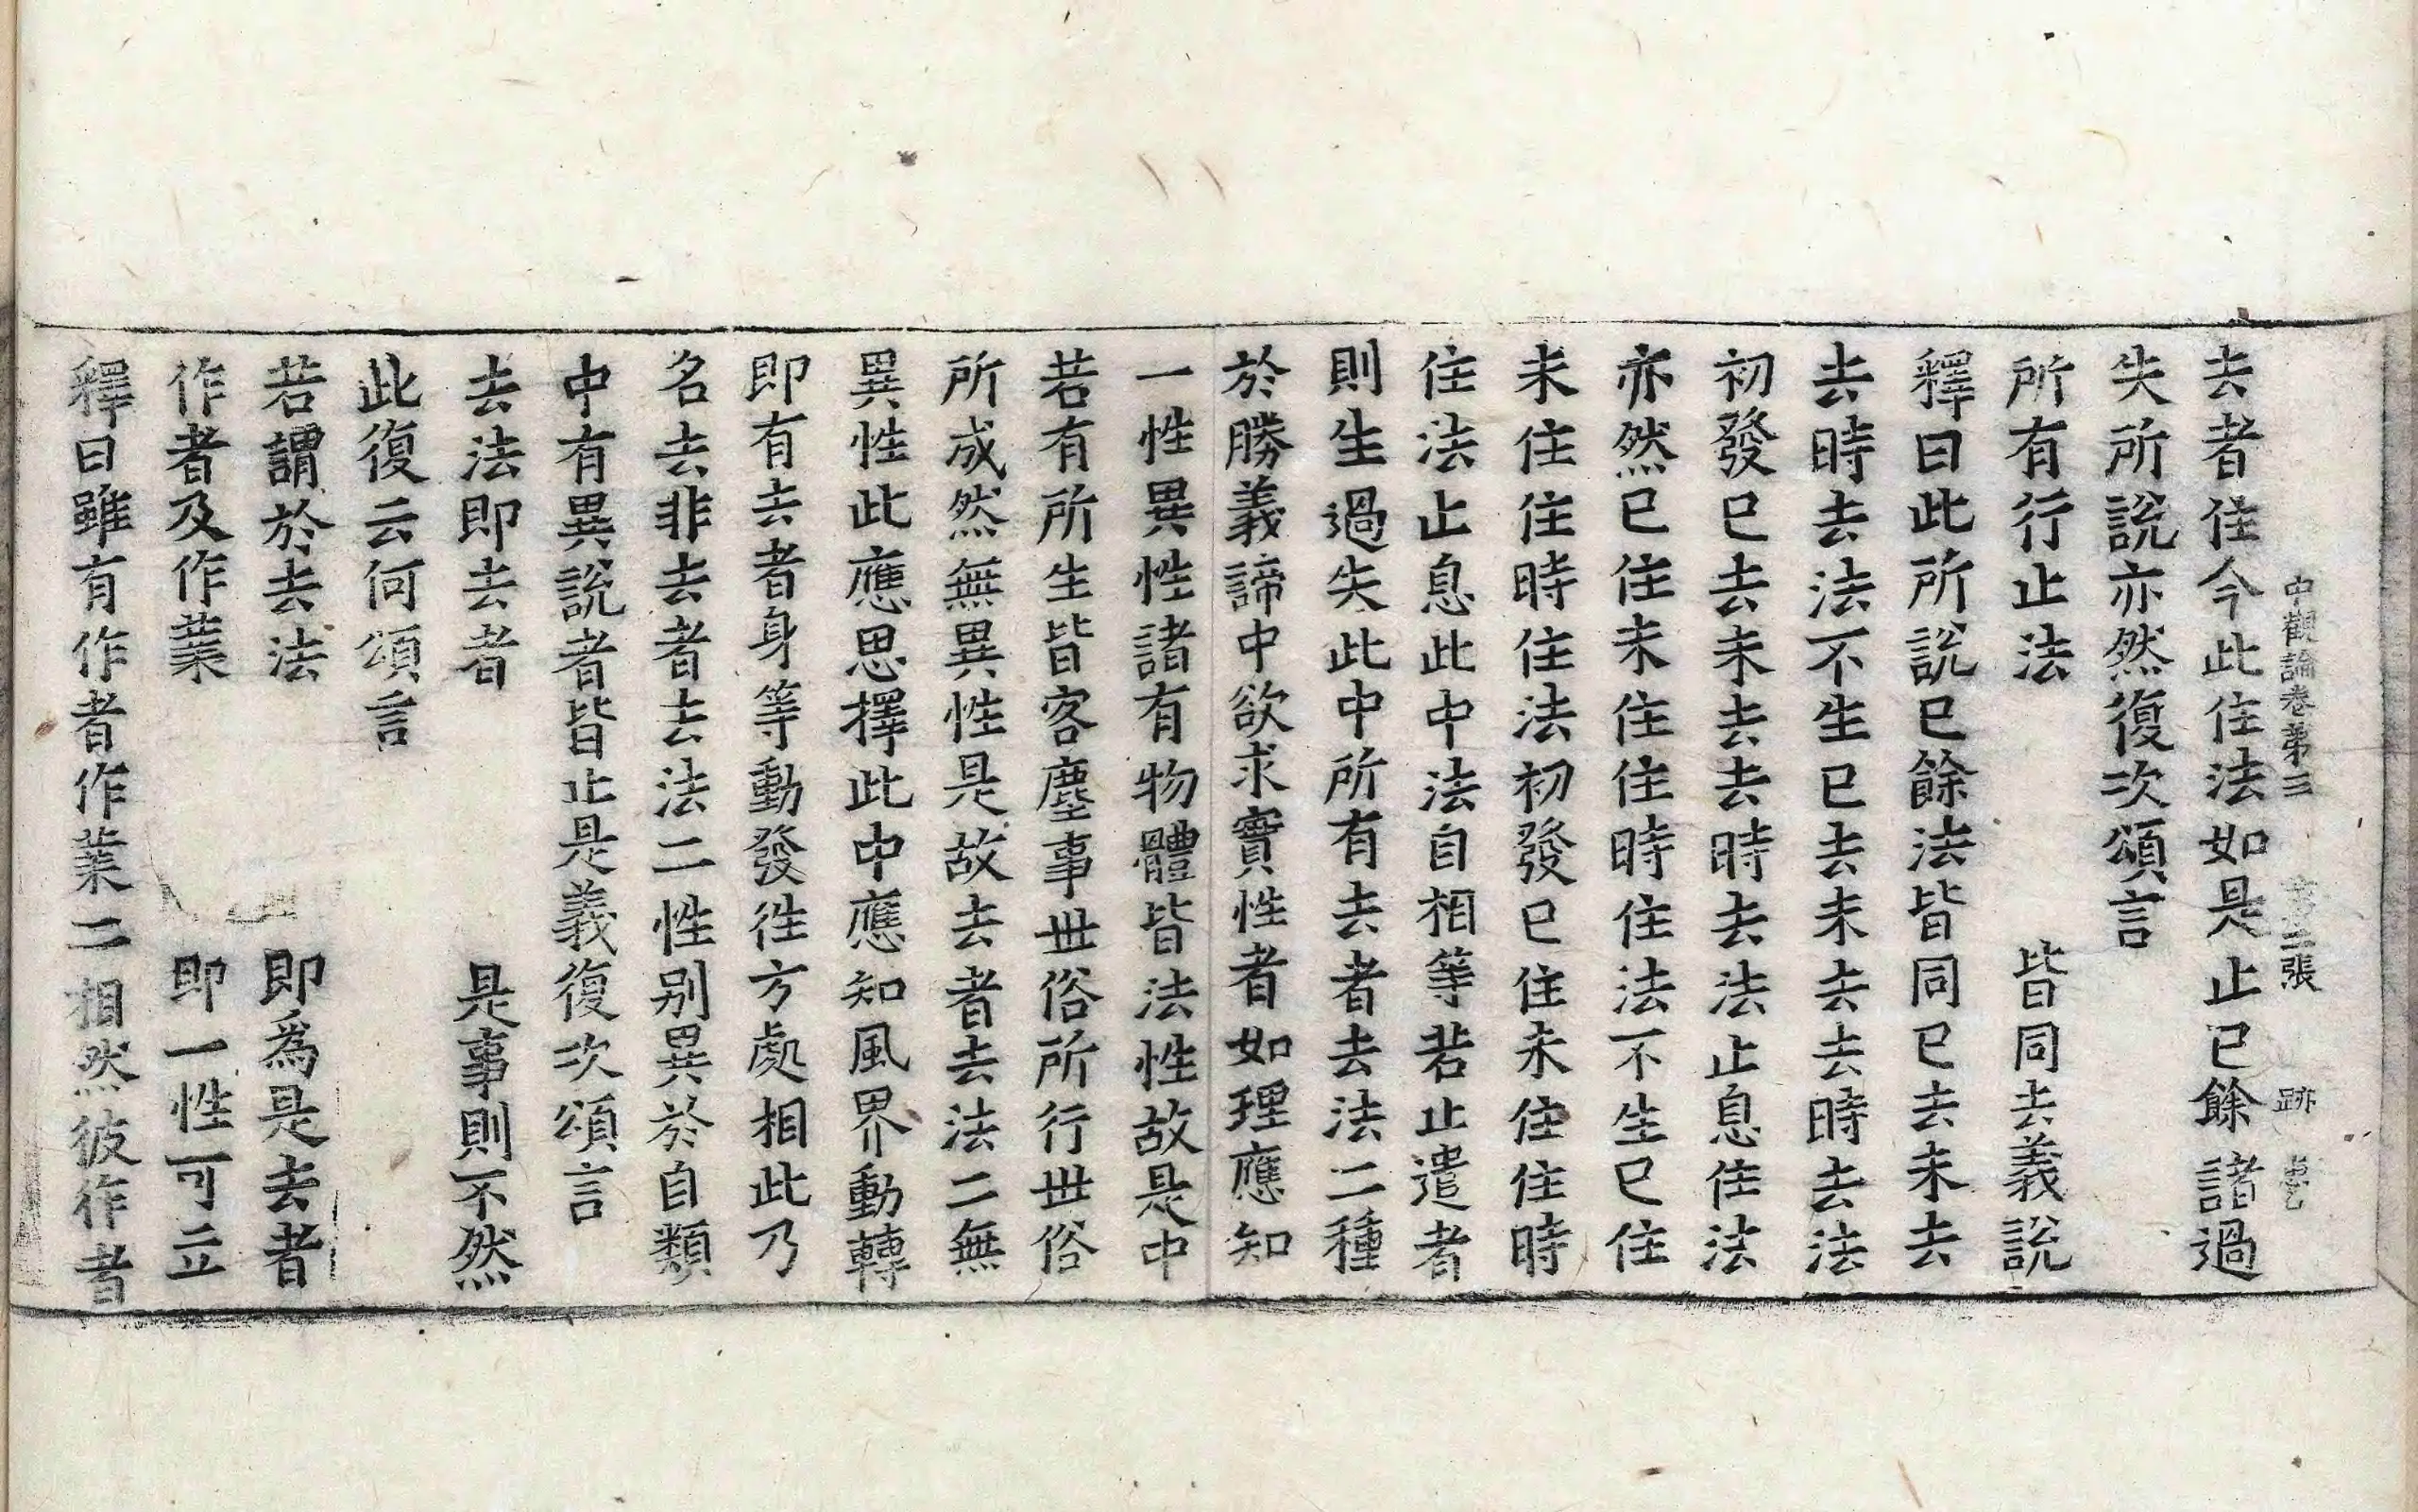 中觀論卷第三 第二張 跡
去者住今此住法如是止已餘諸過
失所說亦然復次頌言
所有行止法 皆同去義說
釋曰此所說已餘法皆同已去未去
去時去法不生已去未去去時去法
初發已去未去去時去法止息住法
亦然已住未住住時住法不生已住
未住住時住法初發已住未住住時
住法止息此中法自相等若止遣者
則生過失此中所有去者去法二種
於勝義諦中欲求實性者如理應知
一性異性諸有物體皆法性故是中
若有所生皆客塵事世俗所行世俗
所成然無異性是故去者去法二無
異性此應思擇此中應知風界動轉
即有去者身等動發往方處相此乃
名去非去者去法二性別異於自類
中有異說者皆止是義復次頌言
去法即去者 是事則不然
此復云何頌言
若謂於去法 即為是去者
作者及作業 即一性可立
釋曰雖有作者作業二相然彼作者